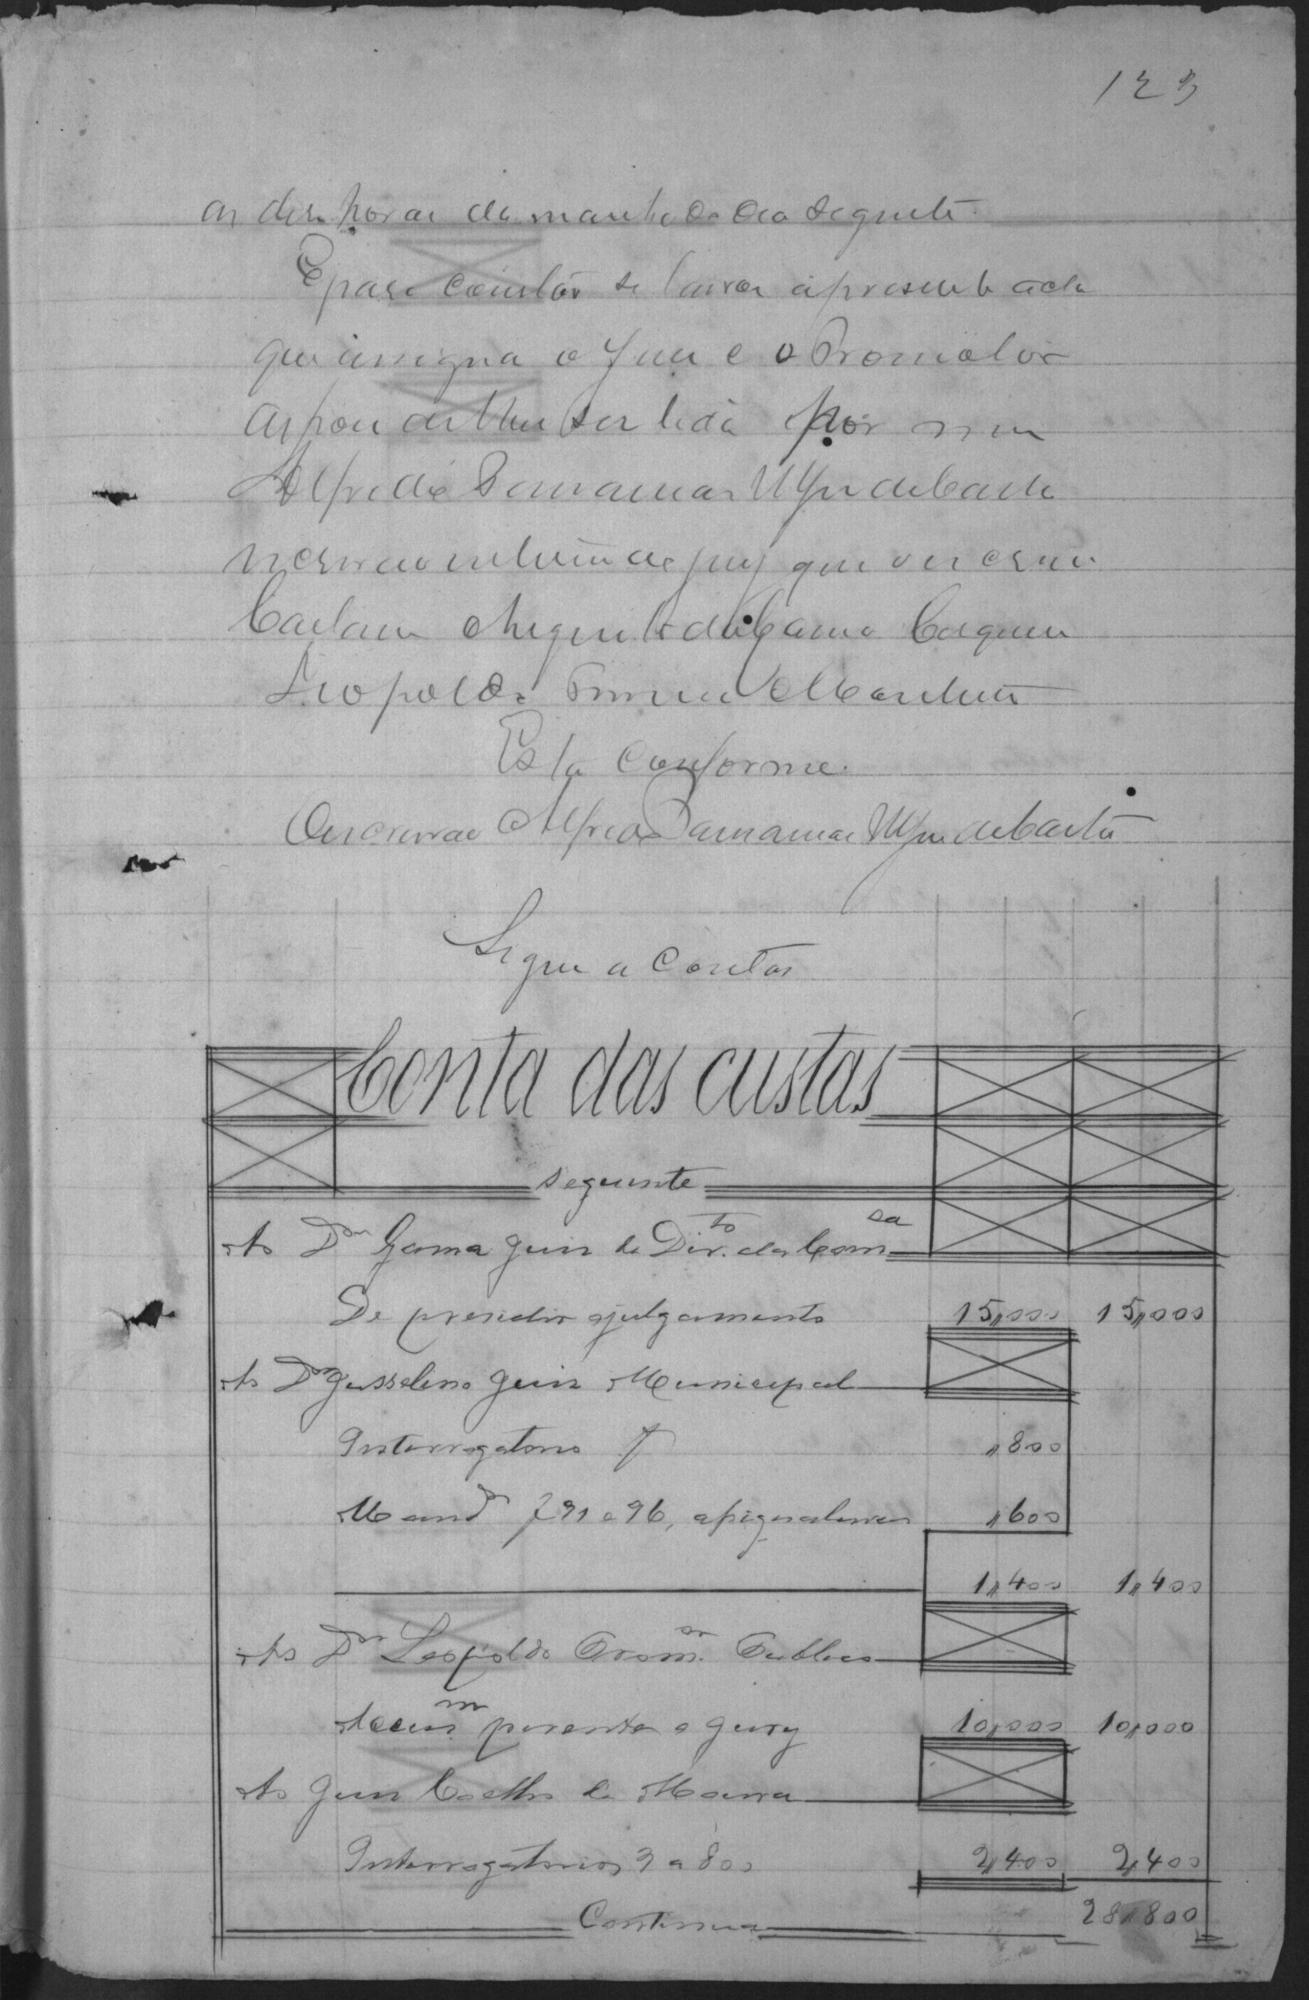 123
as dez horas da manhã do dia seguinte.
E para constar se lavrou a presente acta
que assigna o Juiz e o Promotor
depois de lhes ser lida por mim
Alfredo
escrivão interino do jury que o escrevi
da Gama Cerqueira
Leopoldo
Está conforme.
O escrivão Alfredo
Segue a conta
Conta das custas
seguinte
Ao Dr Gama Juiz de Dirto da Comca
De presidir o julgamento 15,000 15,000
Ao Dr Jusselino Juiz Municipal
Interrogatorio f ,800
Mand f 91 e 96, ,600
1,400 1,400
Ao Dr Leopoldo Promor Publico
Accusm perante o jury 10,000 10,000
Ao Juiz Coelho de Moura
Interrogatorios 3 a 800 2,400 2,400
Continua 28,800